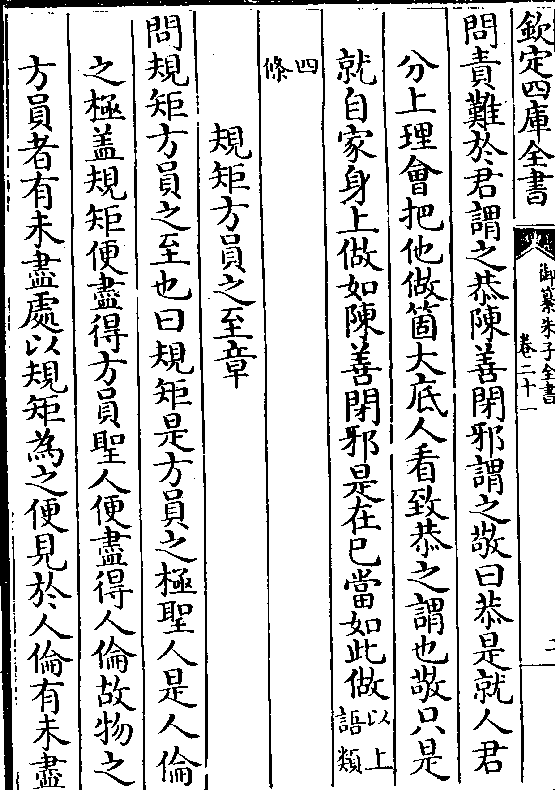 欽定四庫全書
御纂朱子全書
卷二十一
問責難於君謂之恭陳善閉邪謂之敬曰恭是就人君
分上理會把他做箇大底人看致恭之謂也敬只是
就自家身上做如陳善閉邪是在已當如此做以上語類
四條
規矩方員之至章
問規矩方員之至也曰規矩是方員之極聖人是人倫
之極盖規矩便盡得方員聖人便盡得人倫故物之
方員者有未盡處以規矩為之便見於人倫有未盡